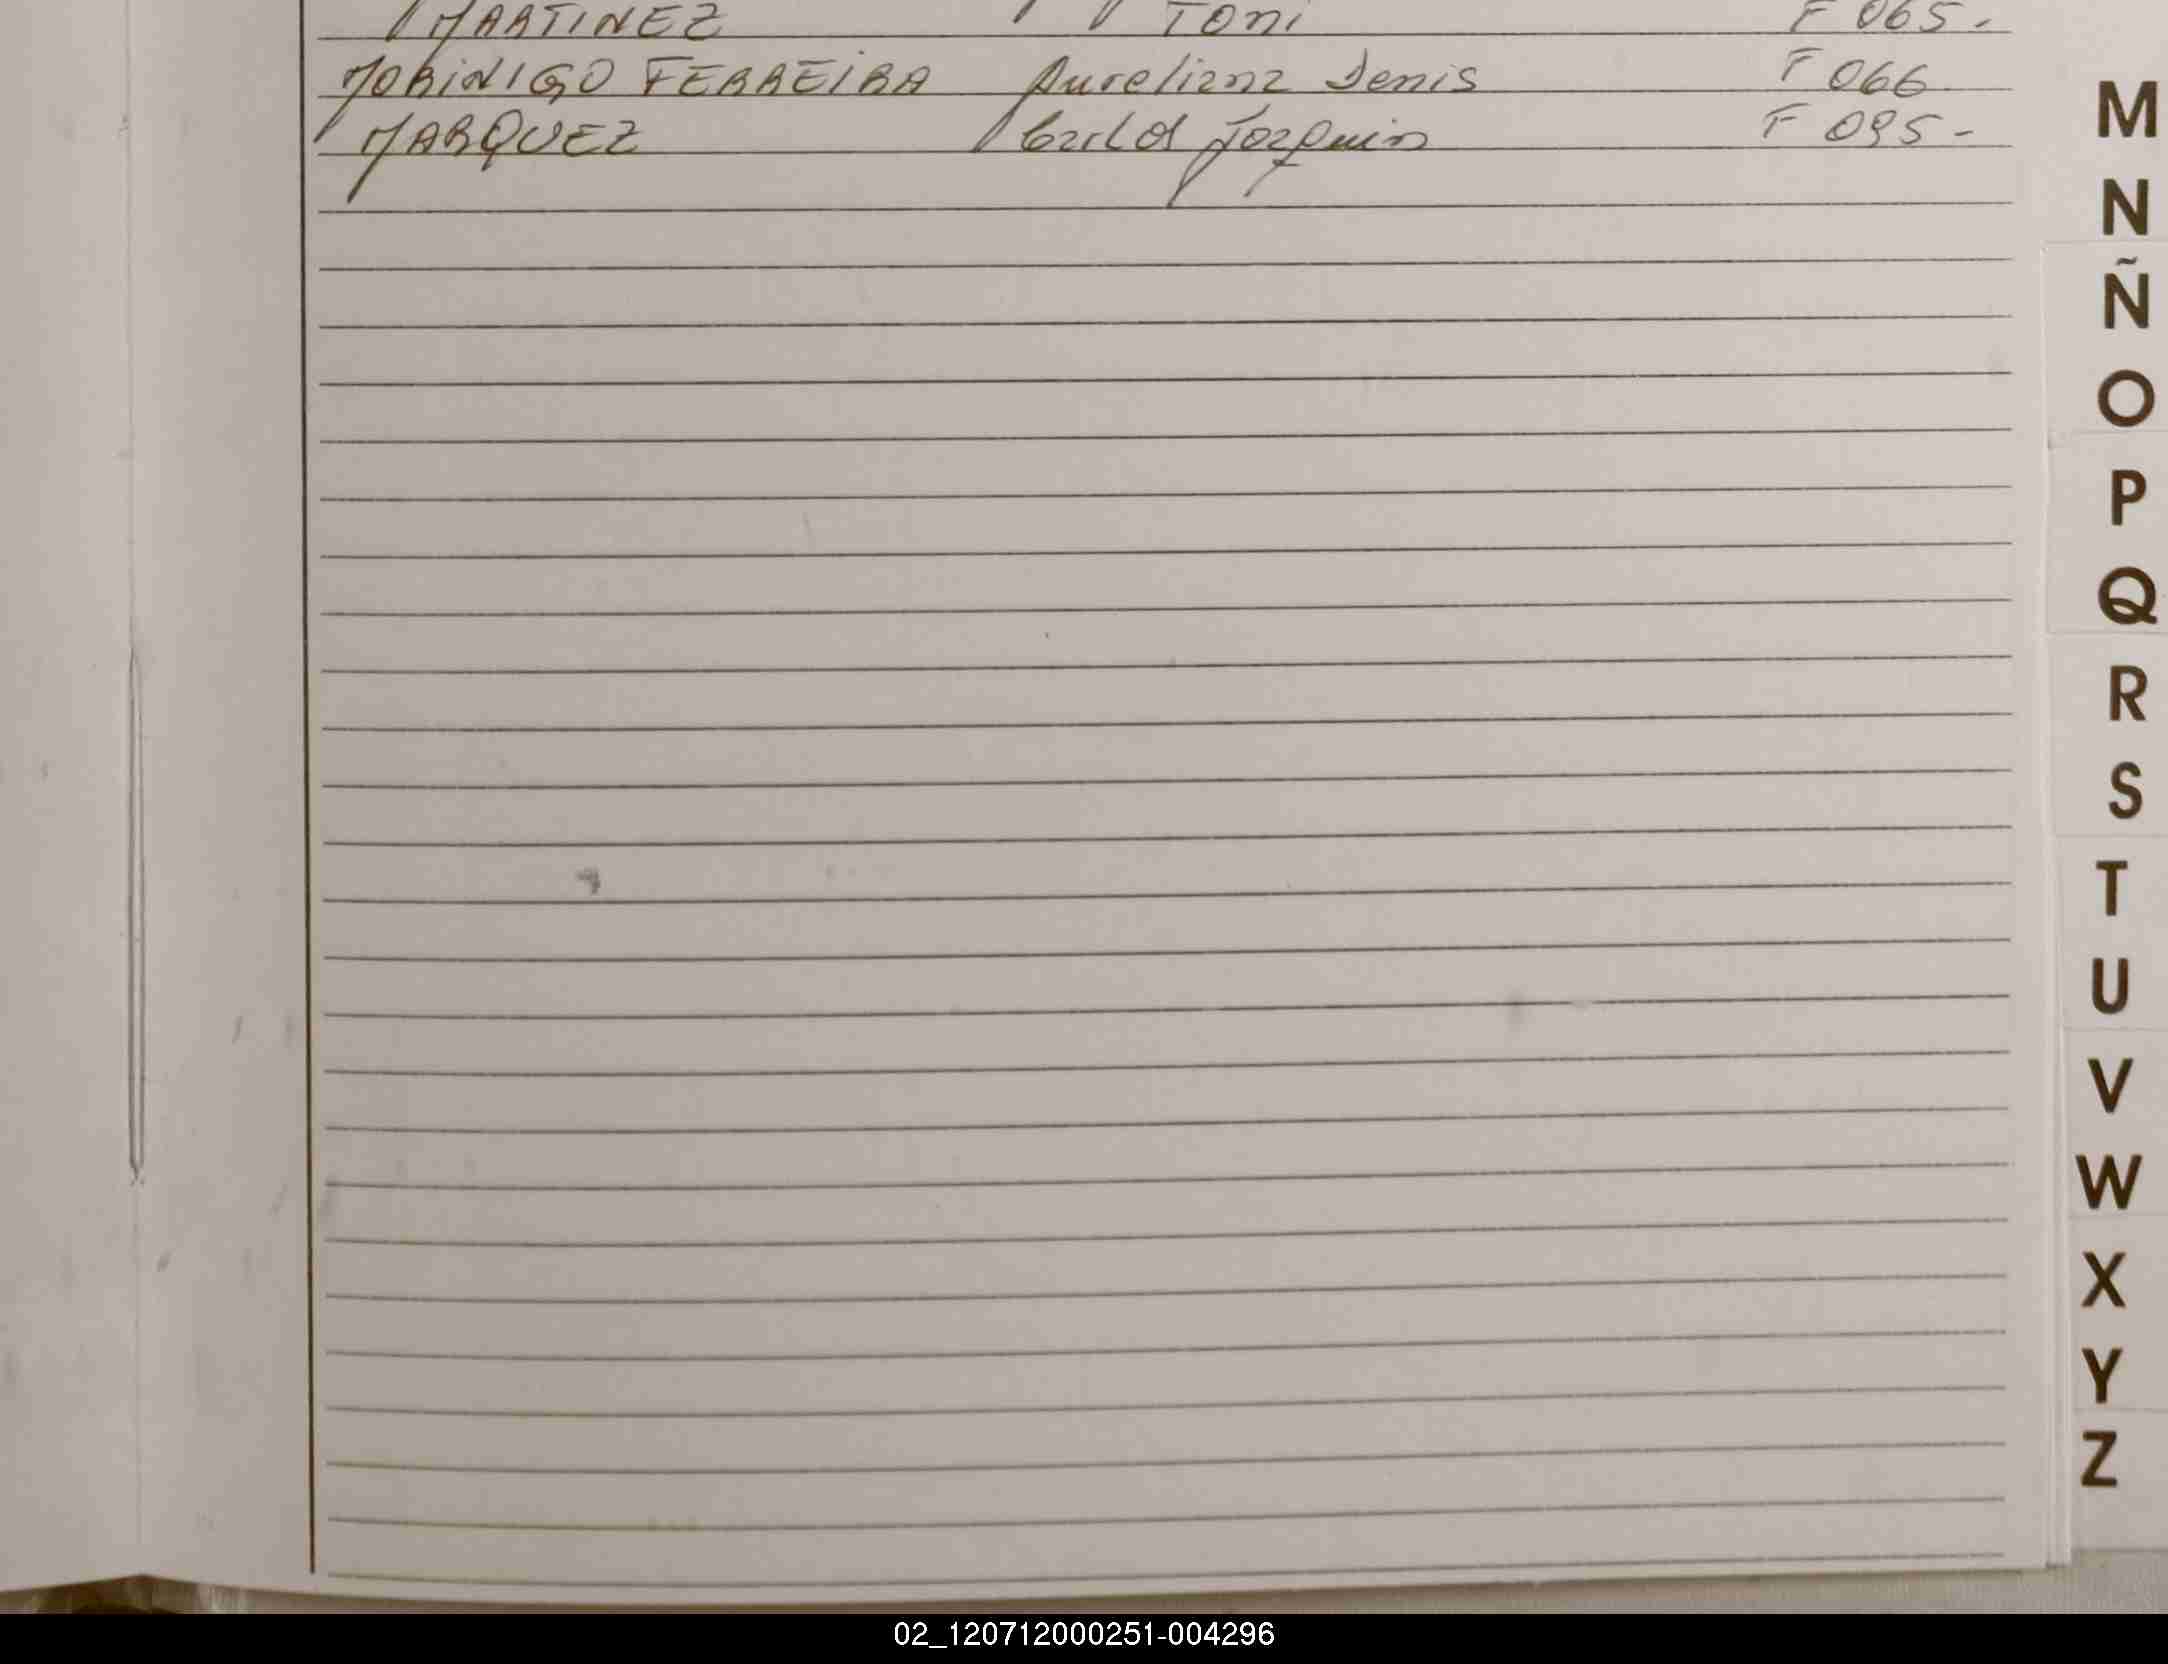 MARTINEZ Toni F 065-
MORINIGO FERREIRA Aureliana Denis F 066
MARQUEZ Carlos Joaquin F 095-
M
N
Ñ
O
P
Q
R
S
T
U
V
W
X
Y
Z
02_120712000251-004296